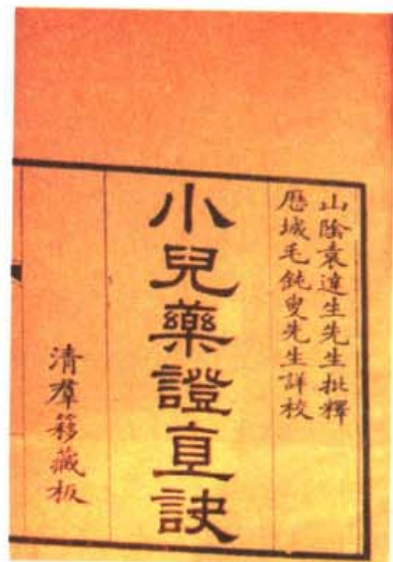 山陰袁達生先生批釋
歷城毛鈍叟先生詳校
小兒藥證直訣
清羣簃藏板